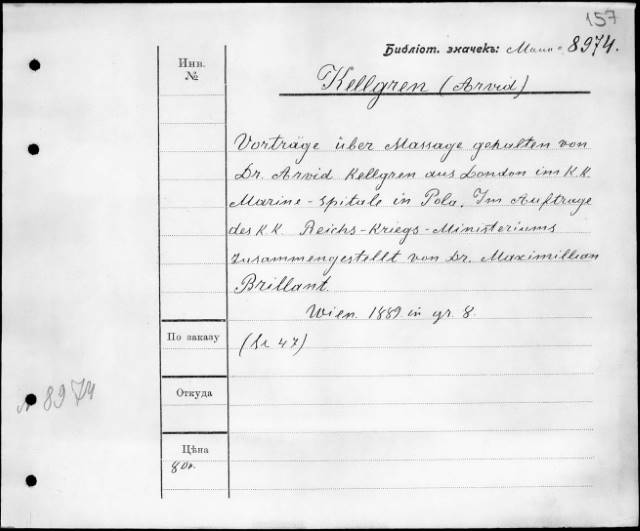 157
Библіот. значекъ: 8974.
Инв.
№
Kellgren (Arvid)
Vorträge über Massage gehalten von
Dr. Arvid Kellgren aus London im K.K.
Marine-Spitale in Pola. Im Auftrage
des K.K. Reichs-Kriegs-Ministeriums
zusammengestellt von Dr. Maximillian
Brillant.
Wien. 1889 in gr. 8.
По заказу
(47)
8974
Откуда
Цѣна